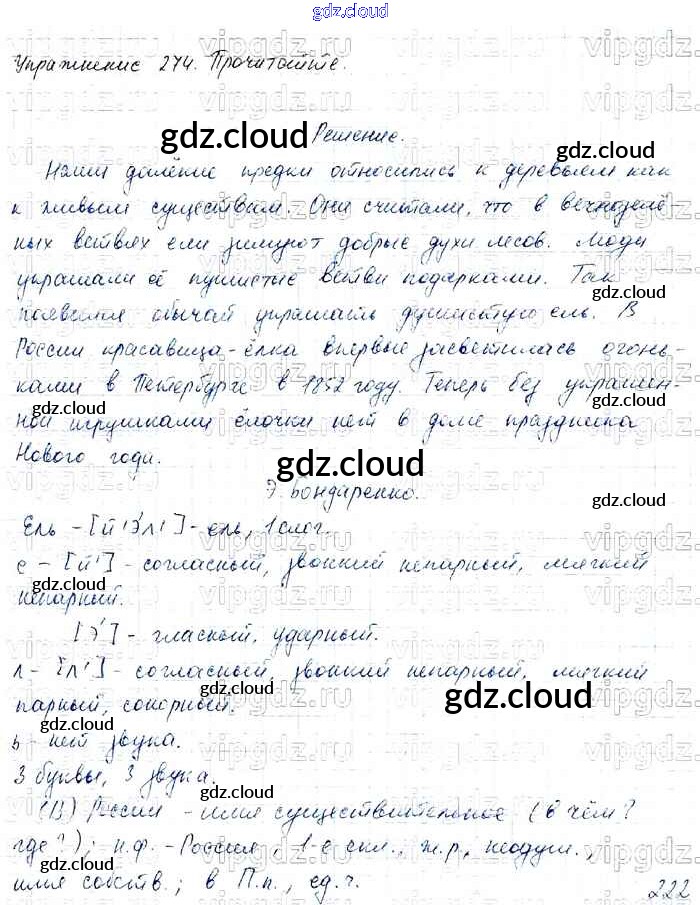 gdz.cloud
Упражнение 274. Прочитайте.
Решение.
gdz.cloud
Наши далёкие предки относились к деревьям как
к живым существам. Они считали, что в вечнозелё-
ных ветвях ели зимуют добрые духи лесов. Люди
украшали её пушистые ветви подарками. Так
появился обычай украшать душистую ель. В
России красавица-ёлка впервые засветилась огонь-
ками в Петербурге в 1852 году. Теперь без украшен-
ной игрушками ёлочки нет в доме праздника
Нового года.
gdz.cloud
Э. Бондаренко.
Ель - [й'э́л'] - ель, 1 слог.
е - [й'] - согласный, звонкий непарный, мягкий
непарный.
[э́] - гласный, ударный.
л - [л'] - согласный, звонкий непарный, мягкий
парный, сонорный.
ь - нет звука.
3 буквы, 3 звука.
(В) России - имя существительное (в чём?
где?); н.ф. - Россия, 1-е скл., ж.р., неодуш.,
имя собств.; в П.п., ед.ч.
222